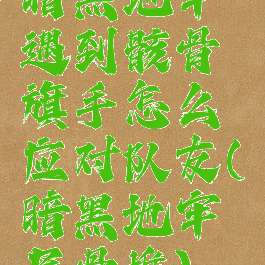 暗黑地牢
遇到骸骨
旗手怎么
应对队友(
暗黑地牢